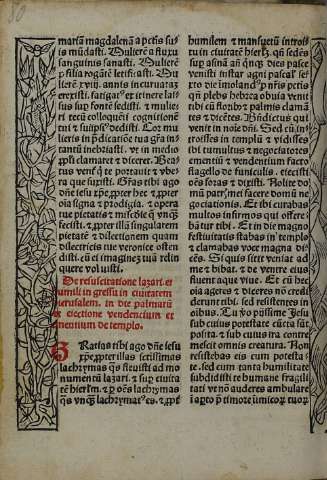 80
mariam magdalenā a pctīs su-
is mūdasti. Mulierē a fluxu
sanguinis sanasti. Mulierē
p filia rogātē letificasti. Mu
lierē xviij. annis incuruatā
erexisti. fatigatꝰ ex itinere laſ-
sus sup fontē sedisti. & mulie-
ri tecū colloquēti cognitionē
tui & suiipsiꝰ dedisti. Cor mu-
lieris in p̄dicatiōe tua gr̄a in
tantū inebriasti. vt in medio
pp̄li clamaret & diceret. Bea-
tus venter q̄ te portauit & vbe-
ra que suxisti. Gr̄as tibi ago
dn̄e iesu xp̄e ꝓpter hec & ꝓpter
oīa signa & prodigia. & opera
tue pietatis & mīsc̄die q̄ vnq̄
fecisti. & ꝓpter illā singularem
pietatē & dilectionem quam
dilectricis tue veronice osten
disti. cū ei imaginē tuā relin
quere voluisti.
De resuscitatione lazari. et
humili ingressu in ciuitatem
ierusalem. in die palmarū
et eiectione vendencium et
mentium de templo.
Gratias tibi ago dn̄e iesu
xp̄e. ꝓpter illas sctissimas
lachrymas q̄s fleuisti ad mo
numentū lazari. & sup ciuita
tē hierl̄m. & ꝓ oēs lachrymas
q̄s vnq̄ lachrymatꝰ es. & ꝓpt̄
humilem & mansuetū introi-
tū in ciuitatē hierl̄m. q̄n sedēs
sup asinā
venisti instar agni pascal' sex-
to die īmolandi
etiā plebs hebrea obuiā venit
tibi cū floribꝰ & palmis claman
tes & dicētes. Bn̄dictus qui
venit in noīe dn̄i. Sed cū in-
troisses in templū & vidisses
ibi tumultus & negociatores
ementiū & vendentium facto
flagello de funiculis. eiecisti
oēs foras & dixisti. Nolite do-
mū patris mei facere domū ne
gociationis. Et ibi curabas
multos infirmos qui offere-
bātur tibi. Et in die magno
festiuitatis stabas in templo
& clamabas voce magna di-
cēs. Si quis sitit veniat ad
me & bibat. & de ventre eius
fluent aque viue. Et cū hec
oīa ageres & diceres nō credi-
derunt tibi. sed resistentes in
eibus. Tu ꝟo piissime Jesu
sub cuius potestate cūcta sūt
posita. & sub cuius ira contre
mescit omnis creatura. Non
resistebas eis cum potesta-
te. sed cum tanta humilitate
subdidisti te humane fragili
tati vt non auderes ambulare
ī aꝑto p̄ timore iudeorū. tuorꝫ